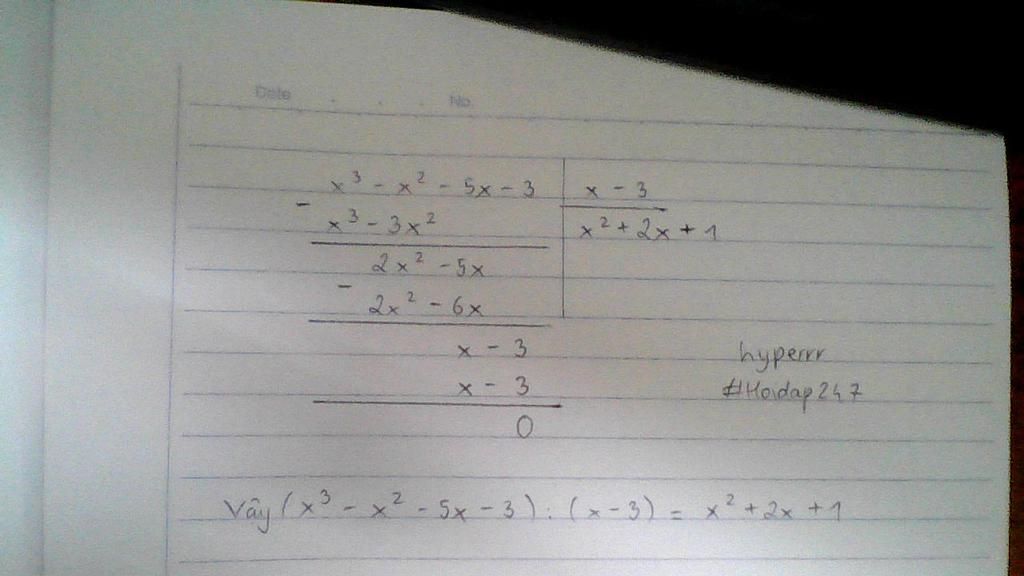 Date . . . No.
x³ - x² - 5x - 3 | x - 3
- x³ - 3x² | x² + 2x + 1
2x² - 5x
- 2x² - 6x
x - 3
x - 3
0
hyperrr
#Hoidap247
Vậy (x³ - x² - 5x - 3) : (x - 3) = x² + 2x + 1